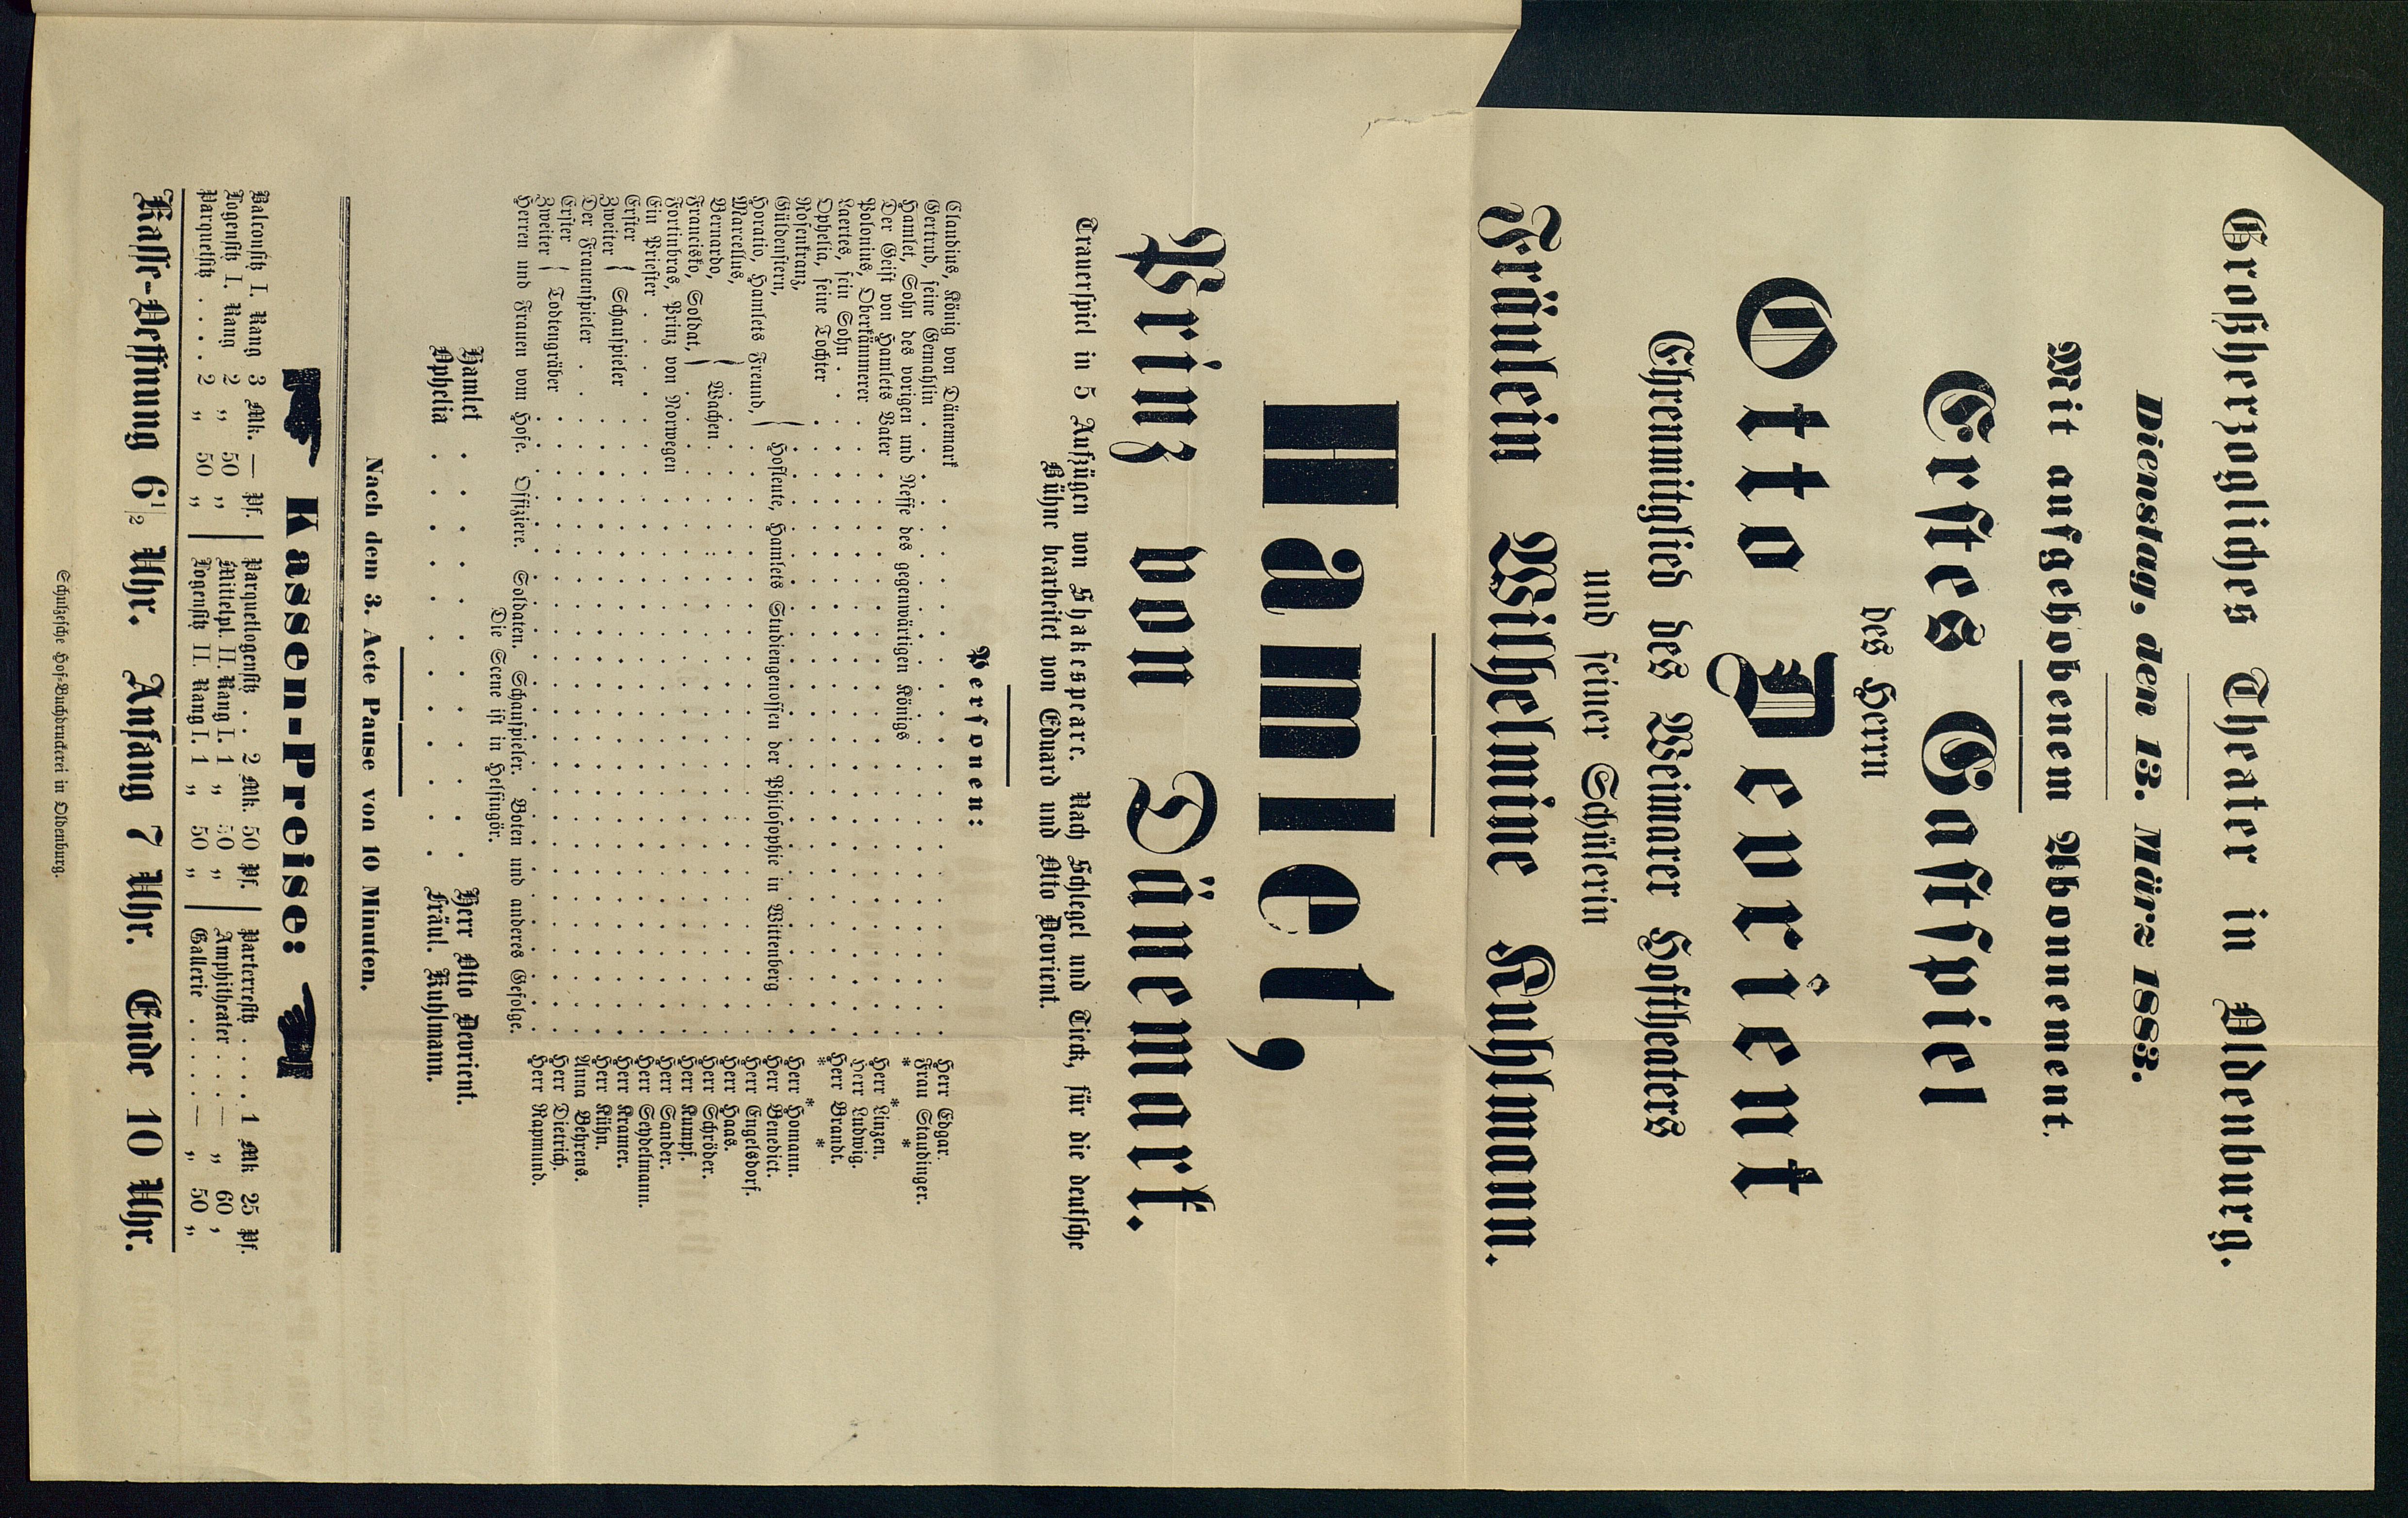 Großherzogliches Theater in Oldenburg.
Dienstag, den 13. März 1883.
Mit aufgehobenem Abonnement.
Erstes Gastspiel
des Herrn
Otto Devrient
Ehrenmitglied des Weimarer Hoftheaters
und seiner Schülerin
Fräulein Wilhelmine Kuhlmann.
Hamlet,
Prinz von Dänemark.
Trauerspiel in 5 Aufzügen von Shakespeare. Nach Schlegel und Tieck, für die deutsche
Bühne bearbeitet von Eduard und Otto Devrient.
Personen:
Claudius, König von Dänemark . . . Herr Edgar.
Gertrud, seine Gemahlin . . . Frau Staudinger.
Hamlet, Sohn des vorigen und Neffe des gegenwärtigen Königs . . . * *
Der Geist von Hamlets Vater . . . Herr Linzen.
Polonius, Oberkämmerer . . . Herr Ludwig.
Laertes, sein Sohn . . . Herr Brandt.
Ophelia, seine Tochter . . . * *
Rosenkranz, } Hofleute, Hamlets Studiengenossen der Philosophie in Wittenberg . . . Herr Homann.
Güldenstern, Herr Benedict.
Horatio, Hamlets Freund, Herr Engelsdorf.
Marcellus, } Wachen . . . Herr Haas.
Bernardo, Herr Schröder.
Francisko, Soldat, Herr Kumpf.
Fortinbras, Prinz von Norwegen . . . Herr Sander.
Ein Priester . . . Herr Seydelmann.
Erster } Schauspieler . . . Herr Kramer.
Zweiter Herr Kühn.
Der Frauenspieler . . . Anna Behrens.
Erster } Todtengräber . . . Herr Dietrich.
Zweiter Herr Rapmund.
Herren und Frauen vom Hofe. Offiziere. Soldaten. Schauspieler. Boten und anderes Gefolge.
Die Scene ist in Helsingör.
* * Hamlet . . . Herr Otto Devrient.
Ophelia . . . Fräul. Kuhlmann.
Nach dem 3. Acte Pause von 10 Minuten.
Kassen-Preise:
Balconsitz I. Rang 3 Mk. — Pf. Parquetlogensitz . . 2 Mk. 50 Pf. Parterresitz . . . . 1 Mk 25 Pf.
Logensitz I. Rang 2 „ 50 „ Mittelpl. II. Rang I. 1 „ 50 „ Amphitheater . . . — „ 60 „
Parquetsitz . . . . 2 „ 50 „ Logensitz II. Rang I. 1 „ 50 „ Gallerie . . . . . — „ 50 „
Kasse-Oeffnung 6 1/2 Uhr. Anfang 7 Uhr. Ende 10 Uhr.
Schulzesche Hof-Buchdruckerei in Oldenburg.